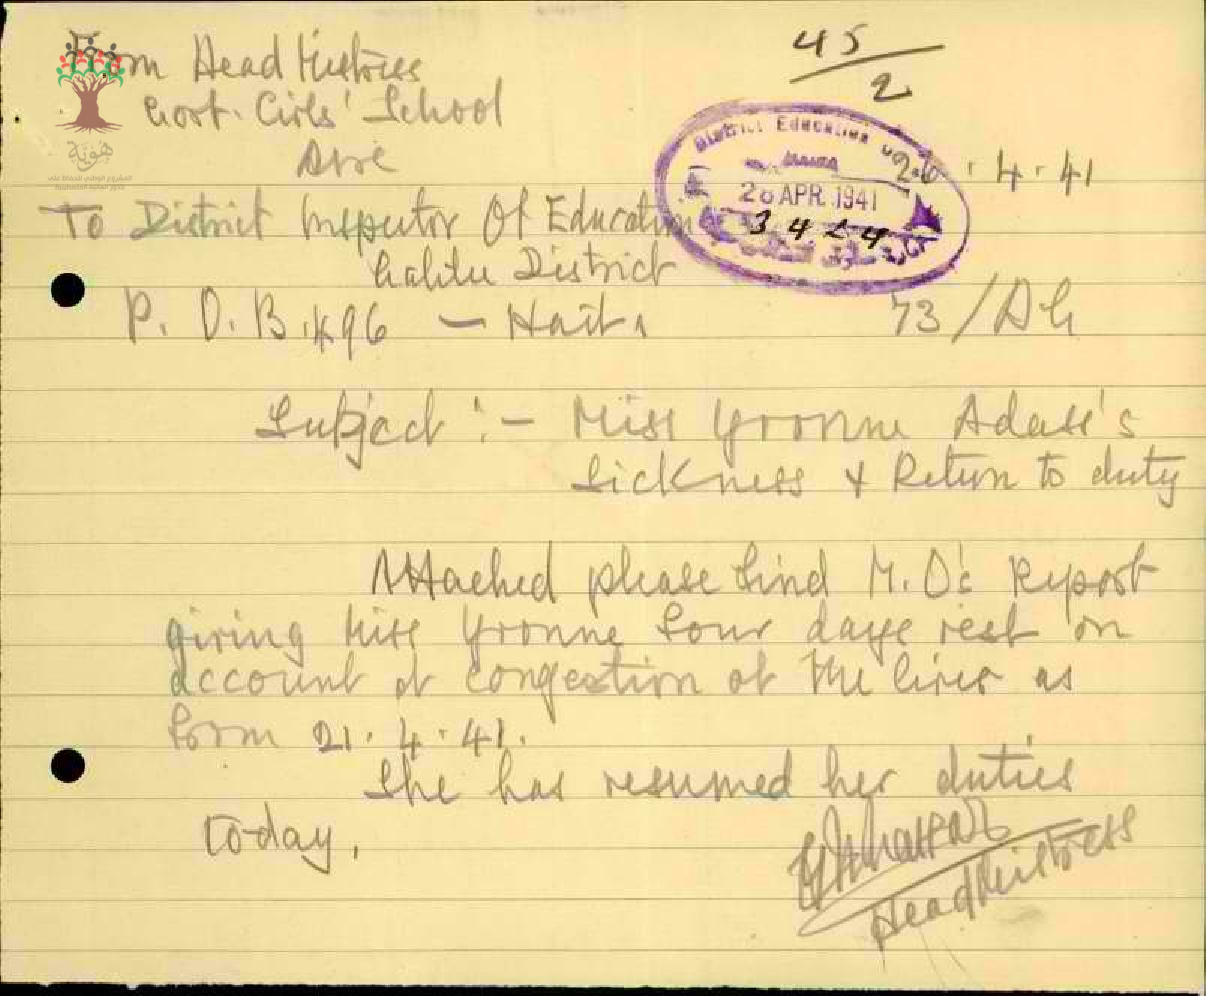 45/2
From Head Mistress
Govt. Girls' School
Acre
26.4.41
District Education
HAIFA
28 APR 1941
3424
To District Inspector Of Education
Galilee District
P. O. B. 496 — Haifa
73/AG
Subject :- Miss Yvonne Adass's
Sickness & Return to duty
Attached please find M.O's report
giving Miss Yvonne four days rest on
account of congestion of the liver as
form 21.4.41.
She has resumed her duties
today.
Head Mistress
هوية